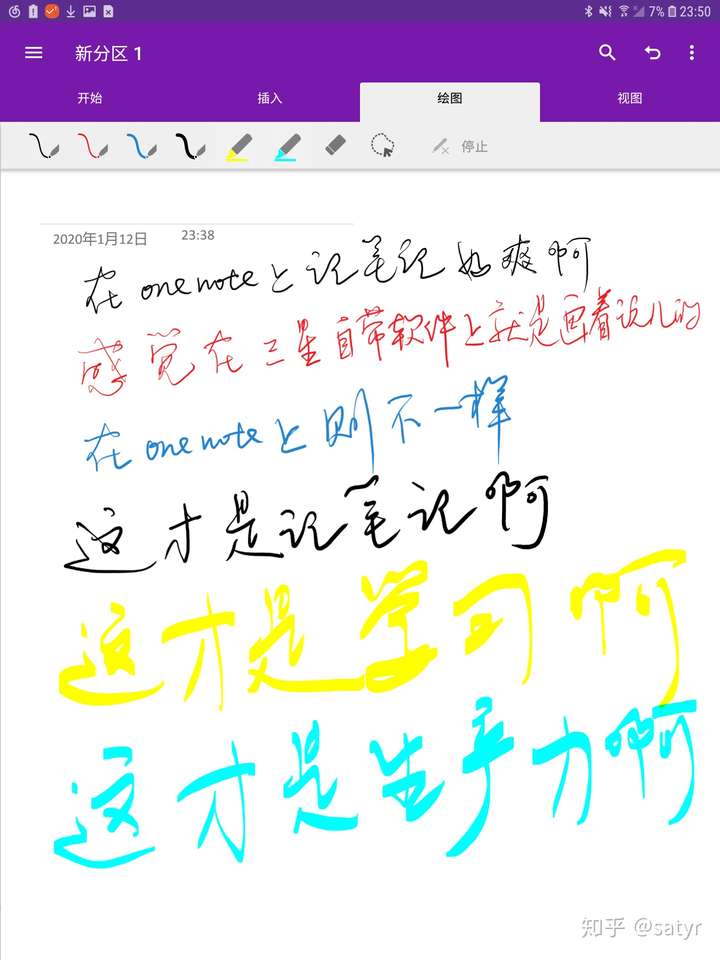 7% 23:50
新分区 1
开始 插入 绘图 视图
停止
2020年1月12日 23:38
在onenote上记笔记好爽啊
感觉在三星自带软件上就是画着玩儿的
在onenote上则不一样
这才是记笔记啊
这才是学习啊
这才是生产力啊
知乎 @satyr